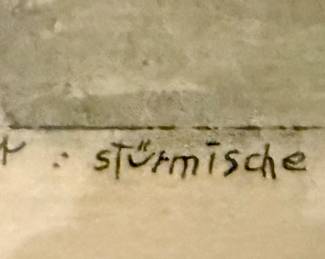 : stürmische